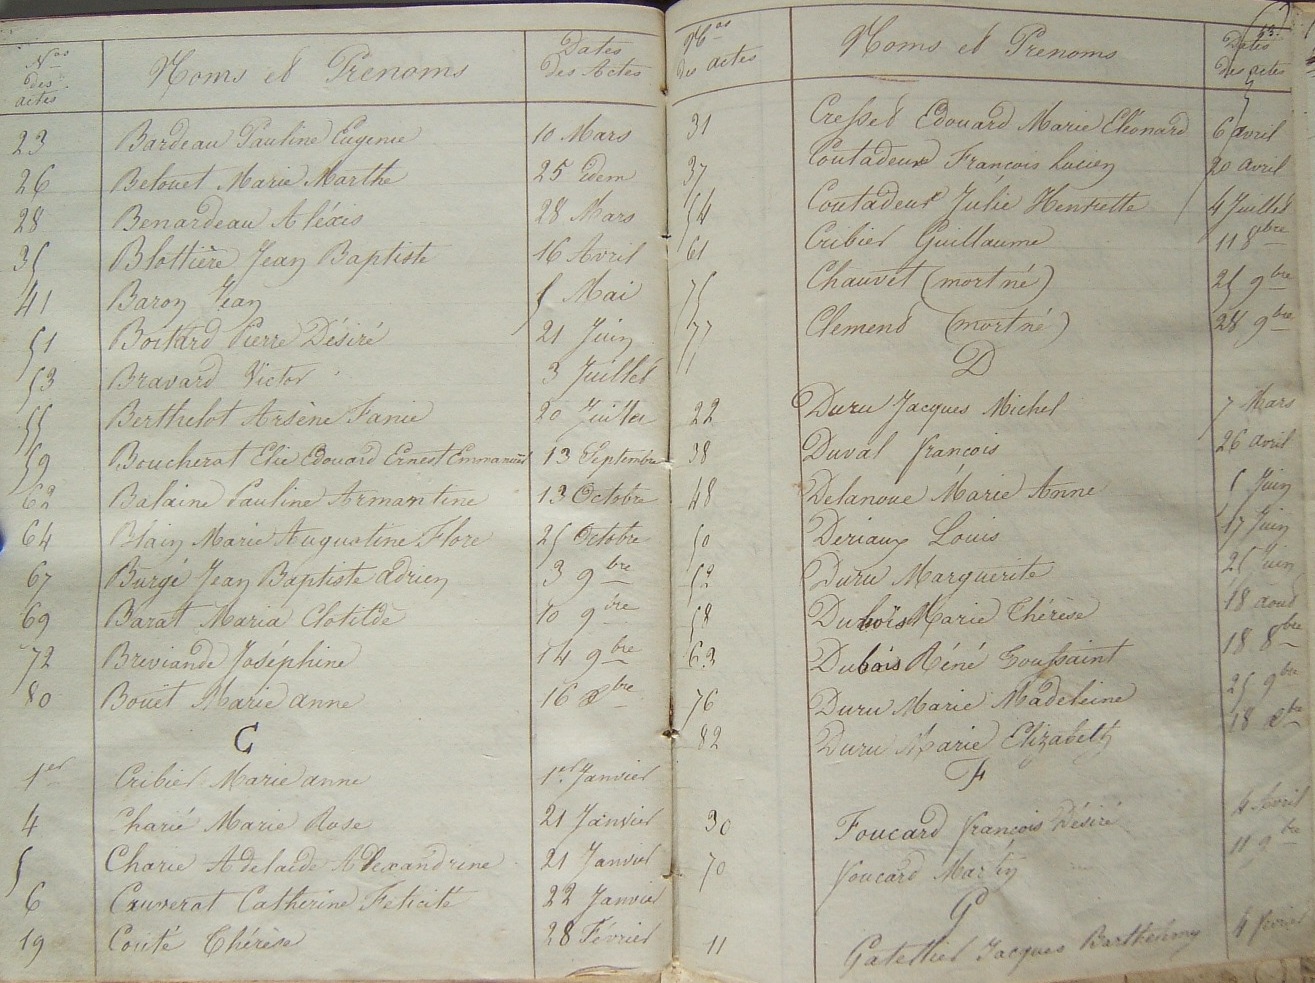 Nos des actes Noms et Prenoms Dates Des Actes
23 Bardeau Pauline Eugenie 10 Mars
26 Betouet Marie Marthe 25 Idem
28 Benardeau Aléxis 28 Mars
35 Blottière Jean Baptiste 16 Avril
41 Baron Jean 5 Mai
51 Boitard Pierre Désiré 21 Juin
53 Bravard Victor 3 Juillet
55 Berthelot Arsène Fanie 20 Juillet
59 Boucherat Elie Edouard Ernest Emmanuel 13 Septembre
62 Balaine Pauline Armantine 13 Octobre
64 Blain Marie Augustine Flore 25 Octobre
67 Burgé Jean Baptiste adrien 3 9bre
69 Barat Maria Clotilde 10 9bre
72 Breviande Joséphine 14 9bre
80 Bouet Marie anne 16 Xbre
C
1er Cribier Marie anne 1er Janvier
4 Charié Marie Rose 21 Janvier
5 Charie Adelaide Alexandrine 21 Janvier
6 Cauverat Catherine Felicité 22 Janvier
19 Couté Thérèse 28 Février
53
Nos des actes Noms et Prenoms Dates des actes
31 Cresset Edouard Marie Eléonard 6 avril
37 Coutadeur François Lucien 20 avril
54 Coutadeur Julie Henriette 4 Juillet
61 Cribier Guillaume 11 8bre
75 Chauvet (mort né) 25 9bre
77 Clement (mort né) 28 9bre
D
22 Duru Jacques Michel 7 Mars
38 Duval François 26 avril
48 Delanoue Marie Anne 5 Juin
50 Deriaux Louis 17 Juin
52 Duru Marguerite 25 Juin
58 Dubois Marie Thérèse 18 aout
63 Dubois Réné Toussaint 18 8bre
76 Duru Marie Madeleine 25 9bre
82 Duru Marie Elizabeth 18 Xbre
F
30 Foucard François Désiré 4 Avril
70 Foucard Martin 11 9bre
G
11 Gatellier Jacques Barthelemy 4 fevrier